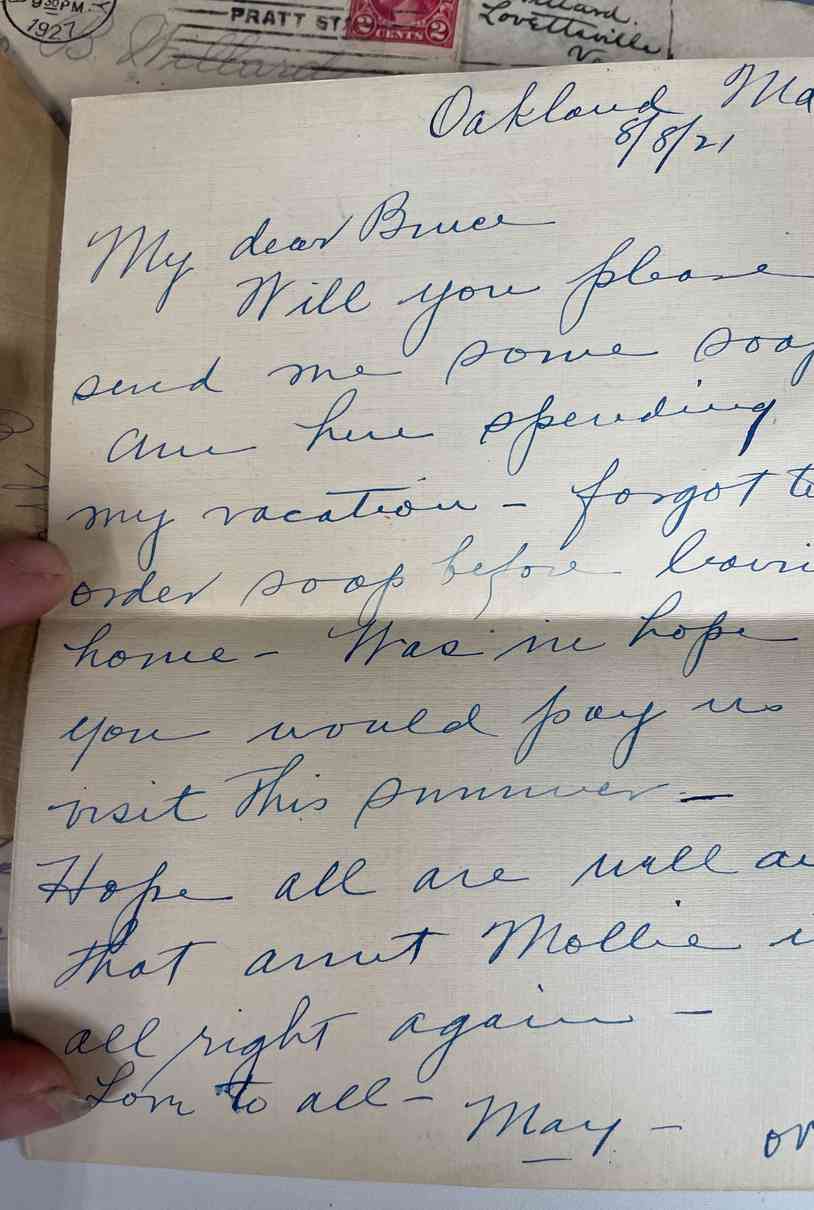 9 30 PM
1927
PRATT ST
2 CENTS 2
Willard.
Lovettsville
Va
Willard
Oakland Ma
8/8/21
My dear Bruce
Will you please
send me some soap
Am here spending
my vacation - forgot to
order soap before leavi
home - Was in hope
you would pay us
visit this summer -
Hope all are well an
that aunt Mollie i
all right again -
Love to all -
May - or